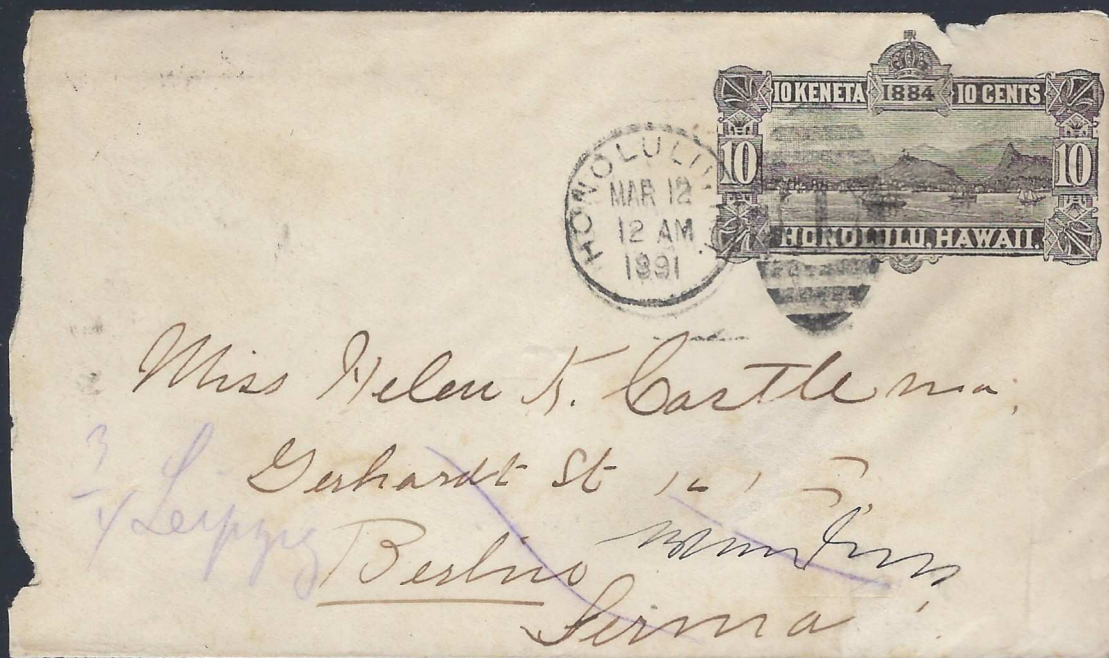 10 KENETA 1884 10 CENTS
10 10
HONOLULU, HAWAII.
HONOLULU
MAR 12
12 AM
1891
Miss Helen K. Castle
Gerhardt St
Leipzig
Berlin